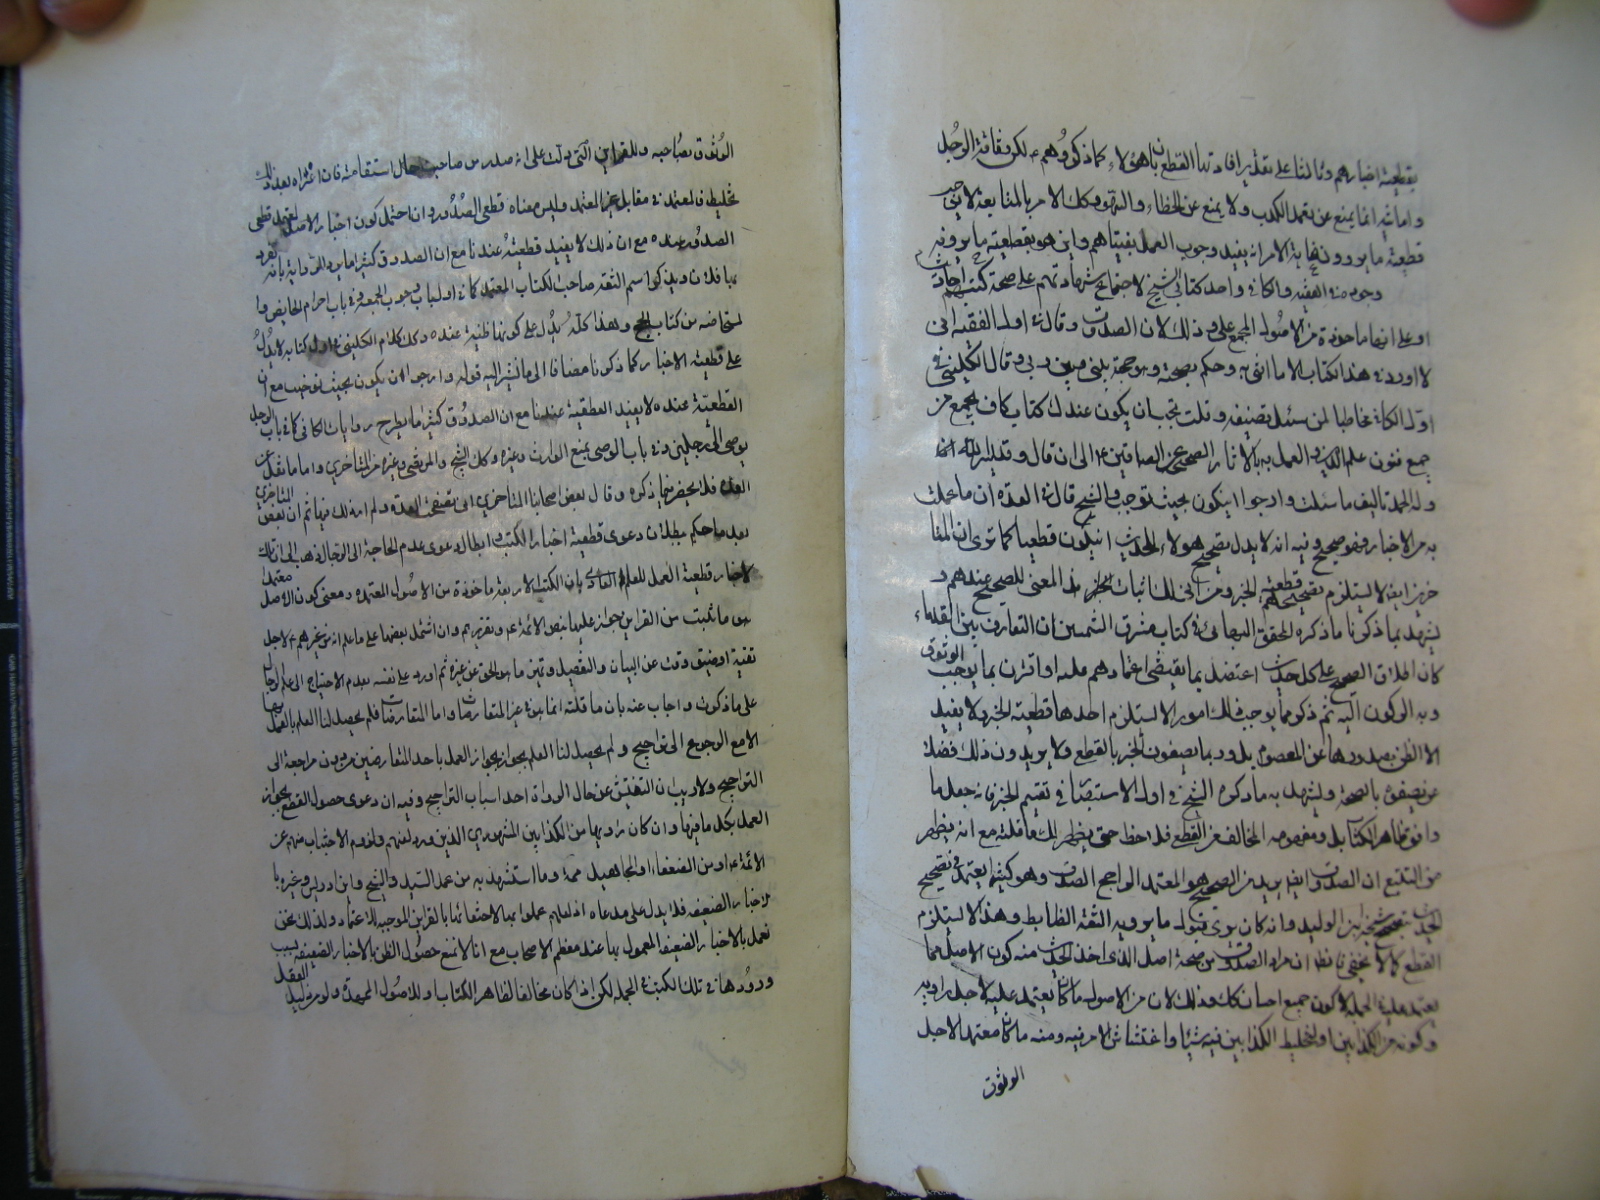 بقطعية اخبارهم وثالثا على تقدير افادتها القطع بان هؤلاء كما ذكروهم لكن وثاقة الرجل
وامانته انما يمنع عن تعمد الكذب ولا يمنع عن الخطاء والسهو وكك الامر بالمتابعة لا يوجب
قطعية ما يروون غاية الامر انه يفيد وجوب العمل بفتياهم واين هو بقطعية ما يروونه
وجوده في الفقيه والكافي واحد كتابي الشيخ لاجتماع شهادتهم على صحة احاديث كتبهم
او على انها ماخوذة من الاصول المجمع عليها وذلك لان الصدوق قال في اول الفقيه انى
لا اورد في هذا الكتاب الا ما افتى به واحكم بصحته وهو حجة بينى وبين ربى وقال الكلينى في
اول الكافى مخاطبا لمن سئله تصنيفه وقلت تحب ان يكون عندك كتاب كاف يجمع من
جميع فنون علم الدين والعمل به بالاثار الصحيحة عن الصادقين ع الى ان قال وقد يسر الله
وله الحمد تاليف ما سئلت وارجوا ان يكون بحيث توخيت والشيخ قال في العدة ان ما عملت
به من الاخبار فهو صحيح وفيه انه لا يدل تصحيح هؤلاء الحديث ان يكون قطعيا كما ترى ان
لا يستلزم تصحيحهم قطعية الخبر ومن اين لك اثبات هذا المعنى للصحيح عندهم و
يشهد بما ذكرنا ما ذكره المحقق البهائى في كتاب مشرق الشمسين ان المتعارف بين القدماء
كان اطلاق الصحيح على كل حديث اعتضد بما يقتضى اعتمادهم عليه او اقترن بما يوجب الوثوق
به والركون اليه ثم ذكر مما يوجب ذلك امورا لا يستلزم احدها قطعية الخبر بل لا يفيد
الا الظن بصدورها عن المعصوم بل وربما يصفون الخبر بالقطع ولا يريدون ذلك فضلا
عن تصيفه بالصحة ويشهد به ما ذكره الشيخ في اول الاستبصار في تقسيم الخبر فانه جعل ما
وافق ظاهر الكتاب بل ومفهومه المخالف من القطع فلاحظ حتى يظهر لك ما قلته مع انه يظهر
من التتبع ان الصدوق ايضا يريد من الصحيح هو المعتمد الراجح الصدق وهو كثيرا يعتمد في تصحيح
الحديث بتصحيح شيخه ابن الوليد وانه كان يرى قبول ما يرويه الثقة الضابط وهذا لا يستلزم
القطع كما لا يخفى فانظر ان مراد الصدوق من صحة اصل الذى اخذ الحديث منه كون الاصل مما
يعتمد عليه في الجملة لا كون جميع اخباره كك وذلك لان من الاصول ما كان يعتمد عليه لاجل راويه
وكونه من الكذابين او لتخليط الكذابين فيه شيئا واغتشاش الامر فيه ومنه ما كان معتمدا لاجل
الوثوق
الوثوق بصاحبه وللقراين التى دلت على انه صدر من صاحبه حال استقامته فان اعتراه بعد ذلك
تخليط فالمعتمد في مقابل غير المعتمد وليس معناه قطعى الصدور وان احتمل كون اخبار الاصل المعتمد قطعى
الصدور عنده مع ان ذلك لا يفيد قطعية عندنا مع ان الصدوق كثيرا ما يرد الرواية بانه تفرد
بها فلان ويذكر اسم الثقة صاحب الكتاب المعتمد كما في اول باب وجوب الجمعة وفي باب احرام الحايض وا
لمستحاضة من كتاب الحج وهذا كله يدل على كونها ظنية عنده وكك كلام الكلينى في اول كتابه لا يدل
على قطعية الاخبار كما ذكرنا مضافا الى ما نشير اليه قوله وارجو ان يكون بحيث توخيت مع ان
القطعية عنده لا يفيد القطعية عندنا مع ان الصدوق كثيرا ما يطرح روايات الكافى كما في باب الرجل
يوصى الى رجلين وفي باب الوصى يمنع الوارث وغيره وكك الشيخ والمرتضى وغيره من المتاخرين واما ما نقل من
العدة فلا يحضرنى ما ذكره وقال بعض اصحابنا المتاخرين انى تصفحت العدة ولم ار ذلك فيها ثم ان بعض المتاخرين
بعد ما حكم ببطلان دعوى قطعية اخبار الكتب وابطال دعوى عدم الحاجة الى الرجال ذهب الى ان تلك
الاخبار قطعية العمل للعلم العادى بان الكتب الاربعة ماخوذة من الاصول المعتمدة ومعنى كون الاصل معتمدا
هو ما ثبت من القراين جواز عليها بنص الائمة ع وتقريرهم وان اشتمل بعضها على ما علم انه من غيرهم لاجل
تقية او ضيق وقت عن البيان والتفصيل وتميز ما هو الحق عن غيره ثم اورد على نفسه بعدم الاحتياج الى علم الرجال
على ما ذكرت واجاب عنه بان ما قلته انما هو في غير المتعارضات واما المتعارضات فلم يحصل لنا العلم بالعمل بها
الا مع الرجوع الى تراجيح ولم يحصل لنا العلم بجواز العمل باحد المتعارضين من دون مراجعة الى
التراجيح ولا ريب ان التفتيش عن حال الرواة احد اسباب التراجيح وفيه ان دعوى حصول القطع بجواز
العمل بكل ما فيها وان كان راويها من الكذابين المشهورين الذين ورد لعنهم ولزوم الاجتناب منهم عن
الائمة ع او من الضعفاء او المجاهيل ممنوع وما استشهد به من عمل السيد والشيخ وابن ادريس وغيره با
لاخبار الضعيفة فلا يدل على مدعاه اذ لعلهم عملوا بها لاحتفائها بالقراين الموجبة للاعتماد ولذلك نحن
نعمل بالاخبار الضعيفة المعمول بها عند معظم الاصحاب مع انا لا نمنع حصول الظن بالاخبار الضعيفة بسبب
ورودها في تلك الكتب في الجملة لكن اذا كان مخالفا لظاهر الكتاب وللاصول الممهدة ولو من دليل العقل